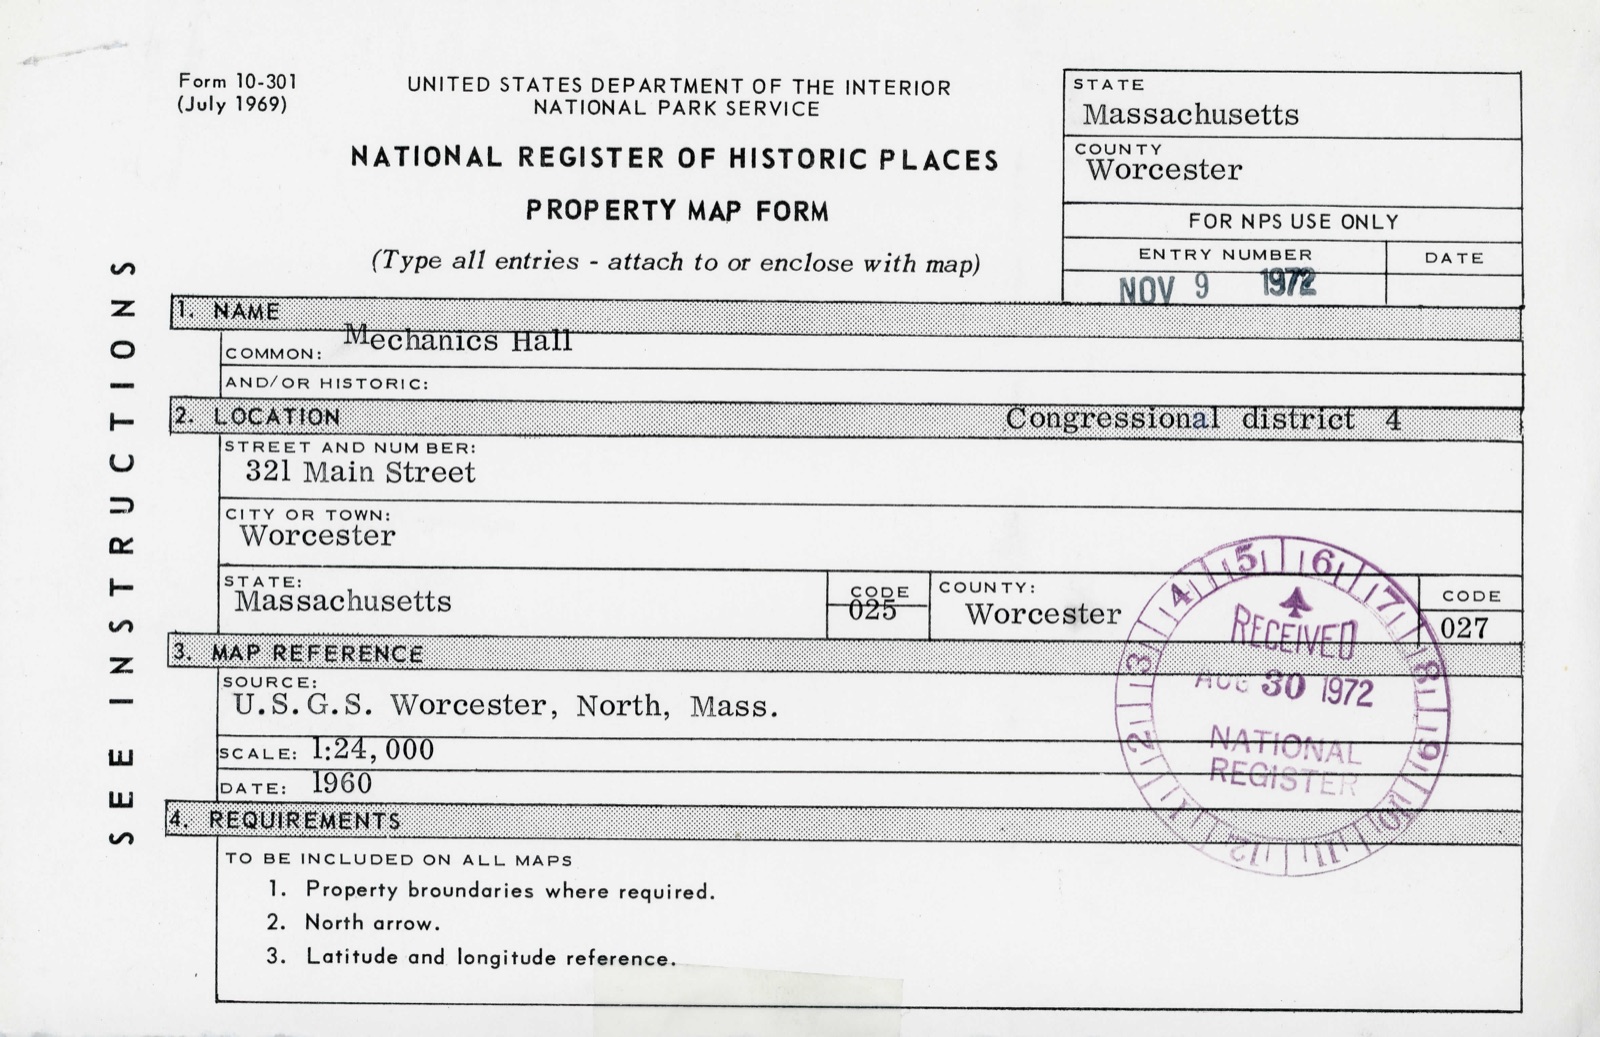 Form 10-301
(July 1969)
UNITED STATES DEPARTMENT OF THE INTERIOR
NATIONAL PARK SERVICE
NATIONAL REGISTER OF HISTORIC PLACES
PROPERTY MAP FORM
(Type all entries - attach to or enclose with map)
STATE
Massachusetts
COUNTY
Worcester
FOR NPS USE ONLY
ENTRY NUMBER DATE
NOV 9 1972
SEE INSTRUCTIONS
1. NAME
COMMON: Mechanics Hall
AND/OR HISTORIC:
2. LOCATION Congressional district 4
STREET AND NUMBER:
321 Main Street
CITY OR TOWN:
Worcester
STATE: CODE COUNTY: CODE
Massachusetts 025 Worcester 027
3. MAP REFERENCE
SOURCE:
U.S.G.S. Worcester, North, Mass.
SCALE: 1:24,000
DATE: 1960
4. REQUIREMENTS
TO BE INCLUDED ON ALL MAPS
1. Property broundaries where required.
2. North arrow.
3. Latitude and longitude reference.
1 2 3 4 5 6 7 8 9 10 11 12
RECEIVED
AUG 30 1972
NATIONAL
REGISTER